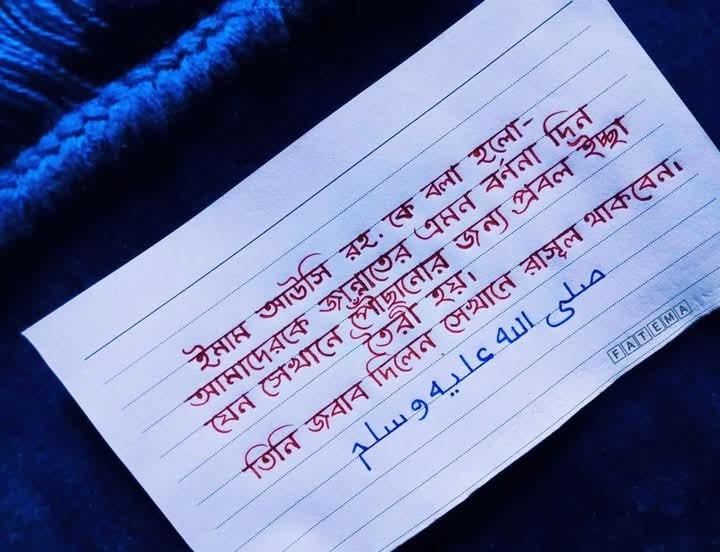 ইমাম আউসি রহ. কে বলা হলো-
আমাদেরকে জান্নাতের এমন বর্ণনা দিন
যেন সেখানে পৌঁছানোর জন্য প্রবল ইচ্ছা
তৈরী হয়।
তিনি জবাব দিলেন সেখানে রাসূল থাকবেন।
صلى الله عليه وسلم
FATEMA